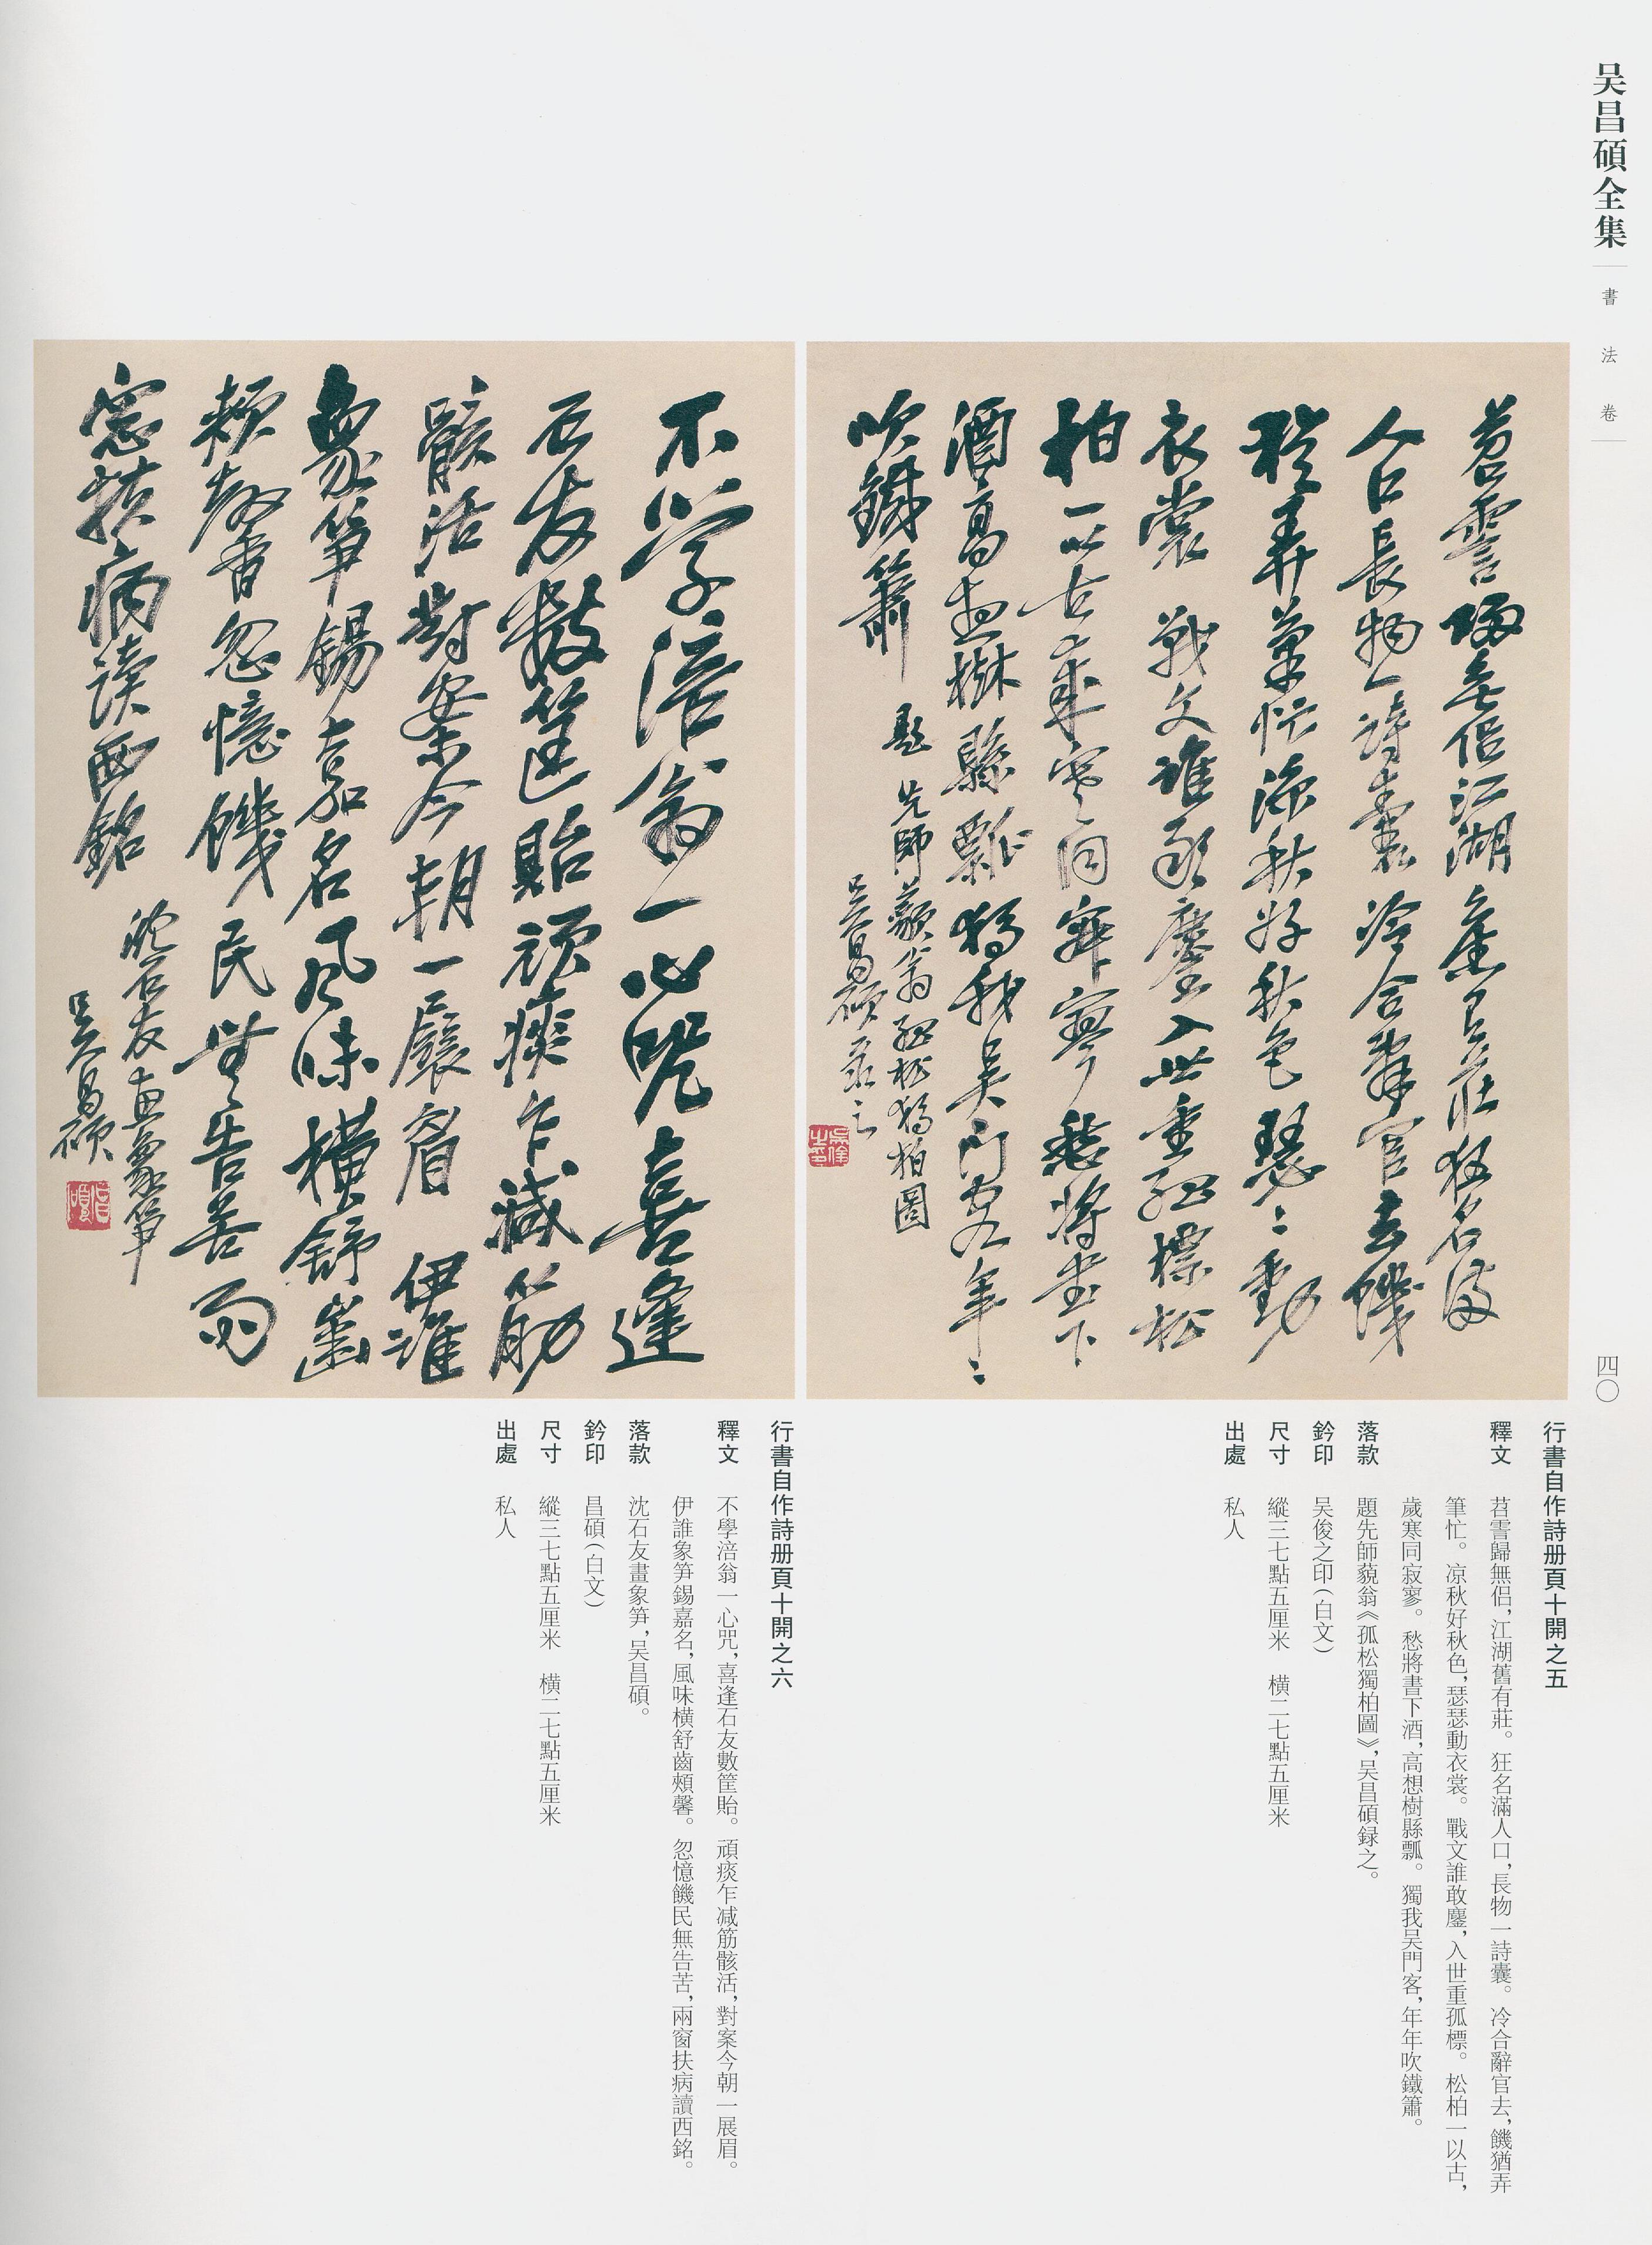 吴昌碩全集
書法卷
四〇
苕霅歸無侶江湖舊有莊狂名滿
人口長物一詩囊冷合辭官去饑
猶弄筆忙涼秋好秋色瑟〻動
衣裳戰文誰敢鏖入世重孤標松
柏一以古歲寒同寂寥愁將書下
酒高想樹縣瓢獨我吴門客年〻
吹鐵簫
題先師藐翁孤松獨柏圖
吴昌碩录之
吴俊之印
行書自作詩册頁十開之五
釋文 苕霅歸無侶，江湖舊有莊。狂名滿人口，長物一詩囊。冷合辭官去，饑猶弄
筆忙。凉秋好秋色，瑟瑟動衣裳。戰文誰敢鏖，入世重孤標。松柏一以古，
歲寒同寂寥。愁將書下酒，高想樹縣瓢。獨我吴門客，年年吹鐵簫。
落款 題先師藐翁《孤松獨柏圖》，吴昌碩録之。
鈐印 吴俊之印（白文）
尺寸 縱三七點五厘米 横二七點五厘米
出處 私人
不學涪翁一心咒喜逢
石友數筐貽頑痰乍減筋
骸活對案今朝一展眉伊誰
象笋錫嘉名風味橫舒齒
頰馨忽憶饑民無告苦雨
窗扶病读西銘
沈石友畫象笋
吴昌碩
昌碩
行書自作詩册頁十開之六
釋文 不學涪翁一心咒，喜逢石友數筐貽。頑痰乍减筋骸活，對案今朝一展眉。
伊誰象笋錫嘉名，風味横舒齒頰馨。忽憶饑民無告苦，兩窗扶病讀西銘。
落款 沈石友畫象笋，吴昌碩。
鈐印 昌碩（白文）
尺寸 縱三七點五厘米 横二七點五厘米
出處 私人